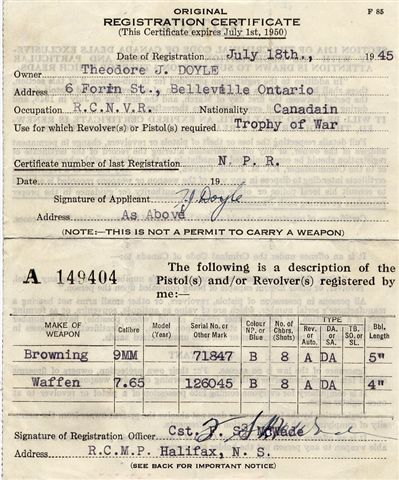 ORIGINAL
F 85
REGISTRATION CERTIFICATE
(This Certificate expires July 1st, 1950)
Date of Registration July 18th., 1945
Owner Theodore J. DOYLE
Address 6 Forin St., Belleville Ontario
Occupation R.C.N.V.R. Nationality Canadain
Use for which Revolver(s) or Pistol(s) required Trophy of War
Certificate number of last Registration N. P. R.
Date 19
Signature of Applicant TJ Doyle
Address As Above
(NOTE:—THIS IS NOT A PERMIT TO CARRY A WEAPON)
A 149404
The following is a description of the Pistol(s) and/or Revolver(s) registered by me:—
MAKE OF WEAPON Calibre Model (Year) Serial No. or Other Mark Colour NP. or Blue No. of Chbrs. (Shots) TYPE Rev. or Auto. DA. or SA. TB. SO. or SL. Bbl. Length
Browning 9MM 71847 B 8 A DA 5"
Waffen 7.65 126045 B 8 A DA 4"
Signature of Registration Officer Cst. F. S. McWade
Address R.C.M.P. Halifax, N. S.
(SEE BACK FOR IMPORTANT NOTICE)